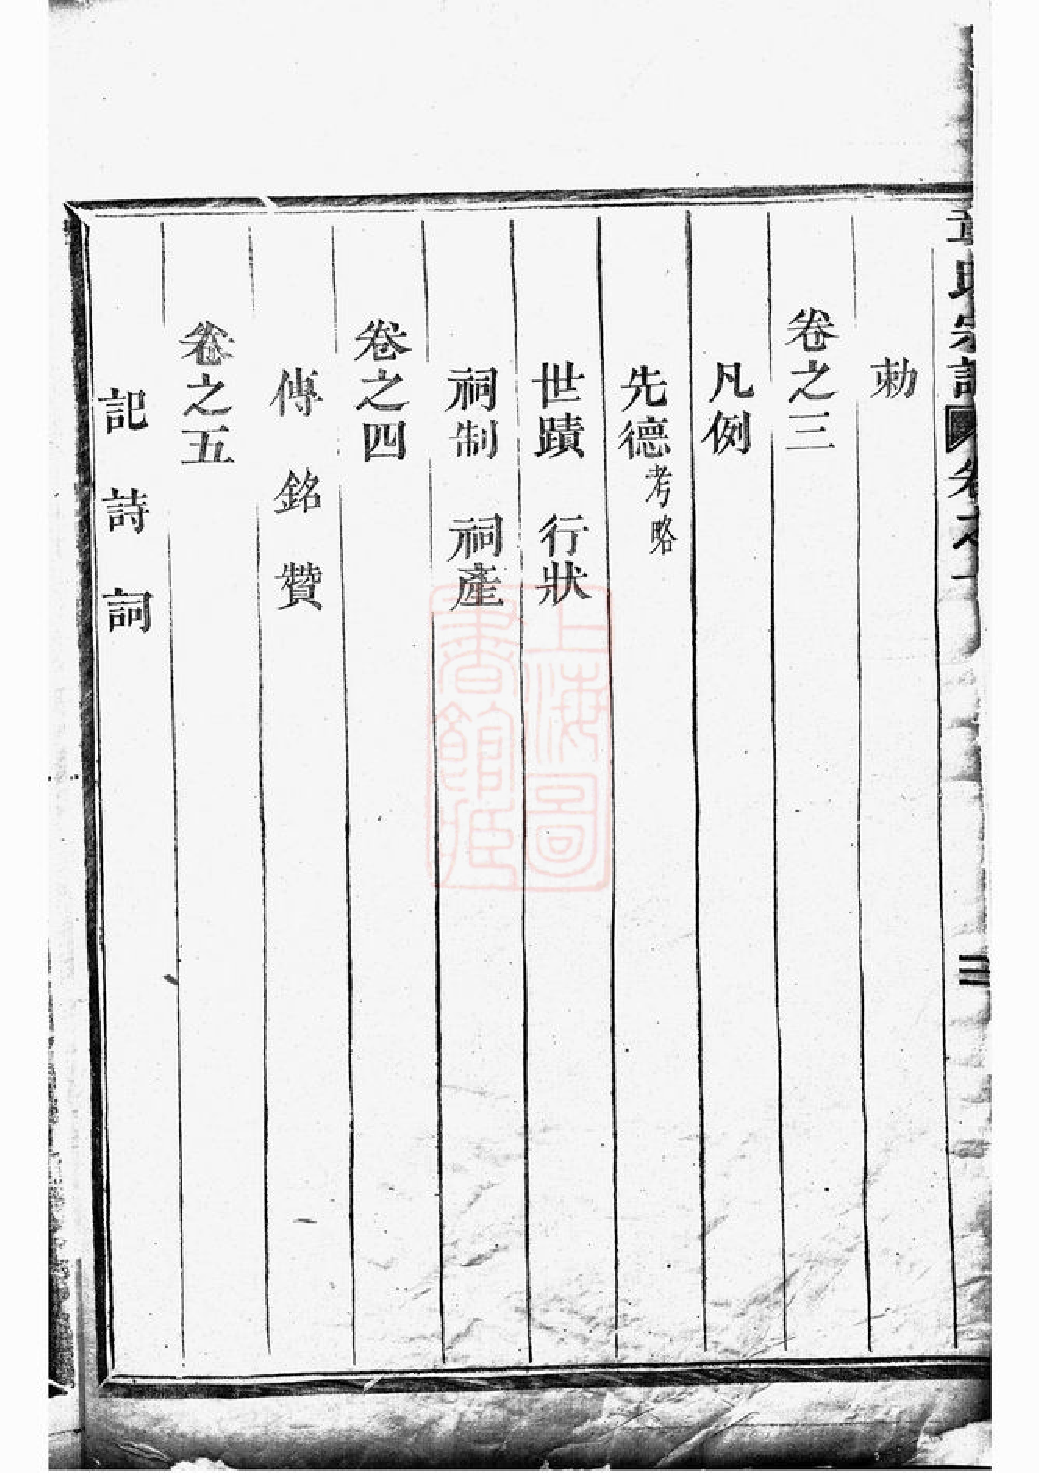 勅
卷之三
凡例
先德考略
世蹟 行狀
祠制 祠產
卷之四
傳 銘 贊
卷之五
記 詩 詞
上海圖書館藏